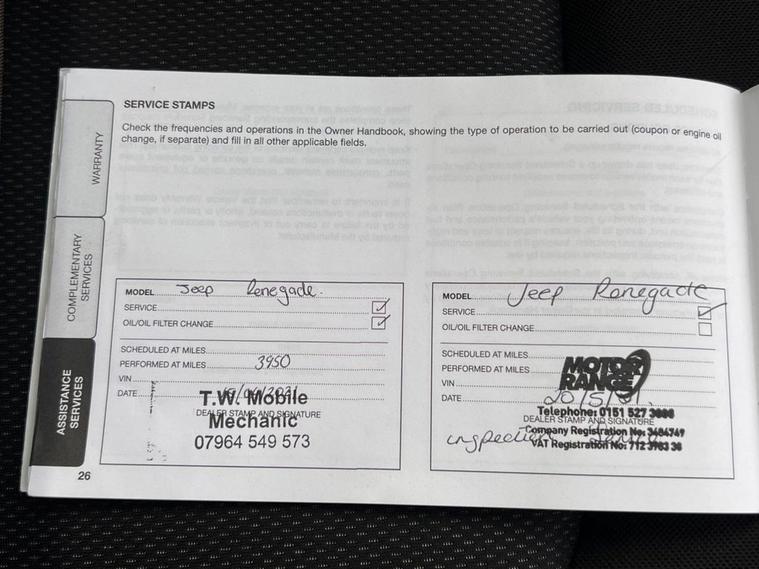 SERVICE STAMPS
Check the frequencies and operations in the Owner Handbook, showing the type of operation to be carried out (coupon or engine oil
change, if separate) and fill in all other applicable fields.
WARRANTY
COMPLEMENTARY
SERVICES
ASSISTANCE
SERVICES
MODEL Jeep Renegade.
SERVICE
OIL/OIL FILTER CHANGE
SCHEDULED AT MILES
PERFORMED AT MILES 3950
VIN
DATE
T.W. Mobile
DEALER STAMP AND SIGNATURE
Mechanic
07964 549 573
MODEL Jeep Renegade
SERVICE
OIL/OIL FILTER CHANGE
SCHEDULED AT MILES
PERFORMED AT MILES
VIN
MOTOR
RANGE
DATE 20/5/21.
Telephone: 0151 527
DEALER STAMP AND SIGNATURE
Company Registration No: 3484749
inspection
VAT Registration No: 712 3983 36
26